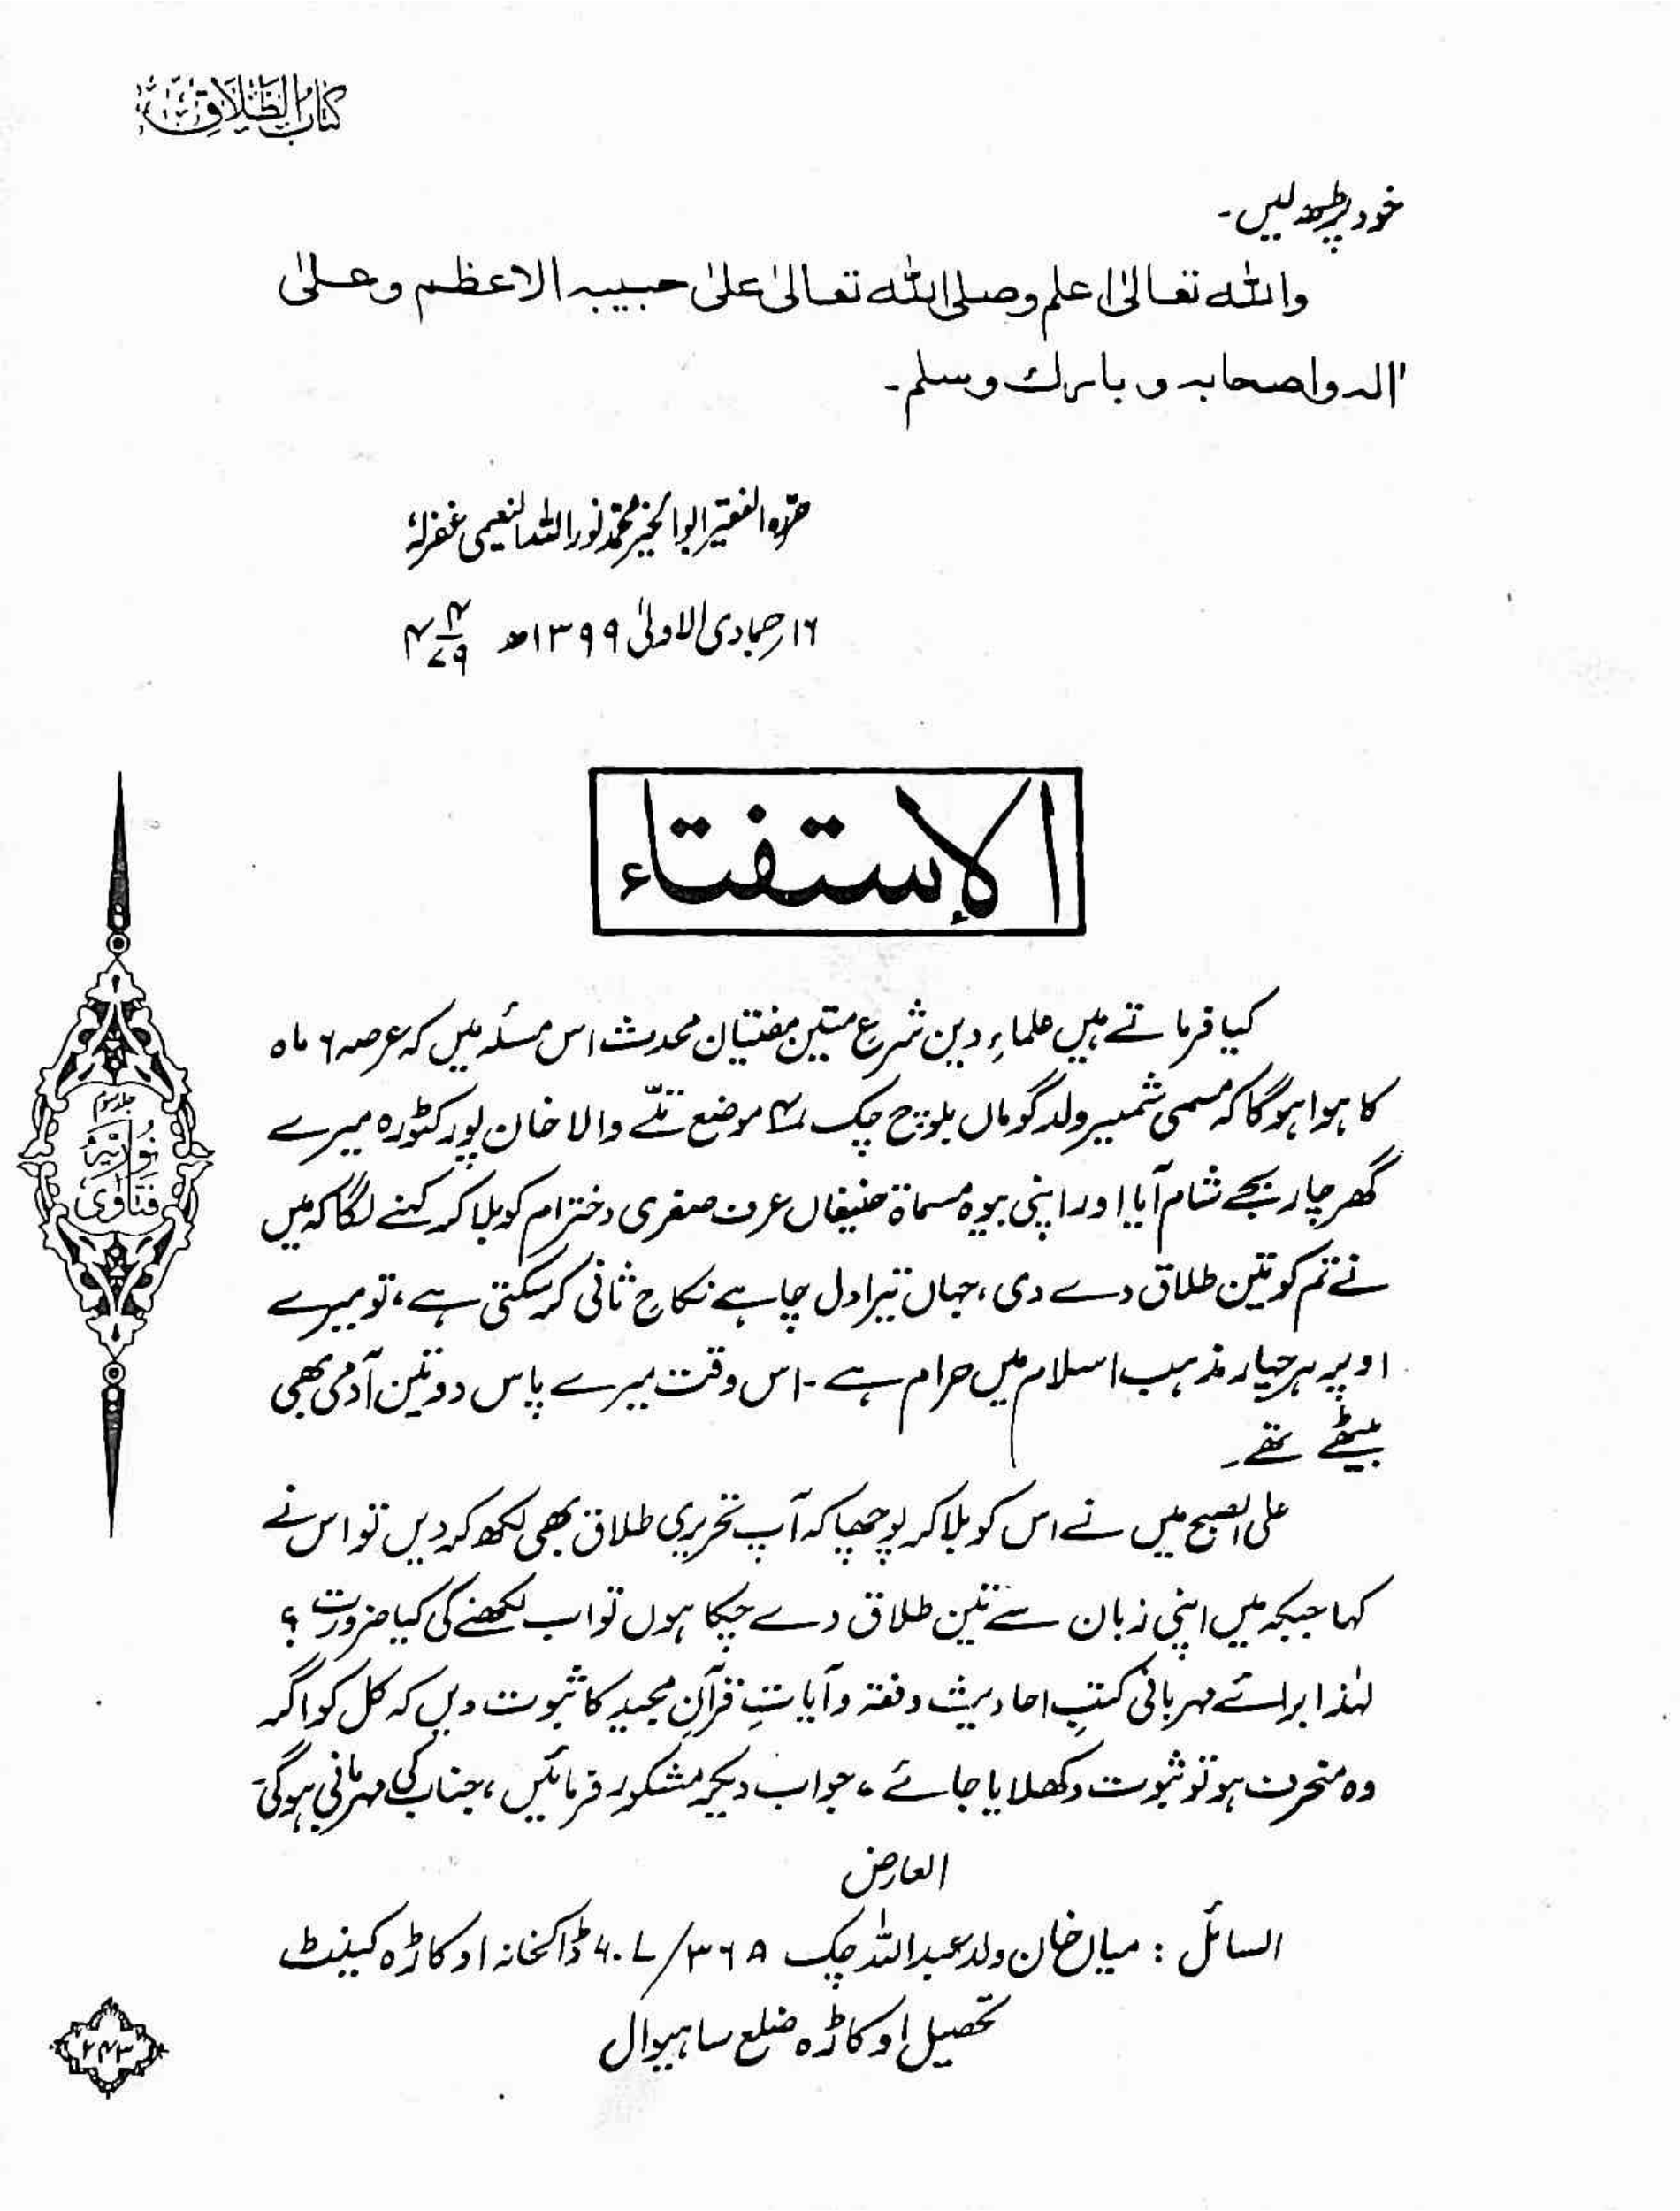 کتاب الطلاق
خود پڑھ لیں۔
واللہ تعالیٰ اعلم وصلی اللہ تعالیٰ علیٰ حبیبہ الاعظم وعلیٰ
اٰلہ واصحابہ وبارک وسلم۔
حررہ الفقیر ابوالخیر محمد نور اللہ النعیمی غفرلہٗ
۱۶ جمادی الاولیٰ ۱۳۹۹ھ ۴/۷۹ ۴
الإستفتاء
کیا فرماتے ہیں علماءِ دین شرعِ متین مفتیان محدث اس مسئلہ میں کہ عرصہ ۶ ماہ
کا ہوا ہوگا کہ مسمی شمبیر ولد گوماں بلوچ چک موضع تلّے والا خان پور کٹورہ میرے
گھر چار بجے شام آیا اور اپنی بیوہ مسماۃ حنیفاں عرف صغری دخترام کو بلا کر کہنے لگا کہ میں
نے تم کو تین طلاق دے دی، جہاں تیرا دل چاہے نکاح ثانی کر سکتی ہے، تو میرے
اوپر ہر چہار مذہب اسلام میں حرام ہے۔ اس وقت میرے پاس دو تین آدمی بھی
بیٹھے تھے۔
علی الصبح میں نے اس کو بلا کر پوچھا کہ آپ تحریری طلاق بھی لکھ کر دیں تو اس نے
کہا جبکہ میں اپنی زبان سے تین طلاق دے چکا ہوں تو اب لکھنے کی کیا ضرورت؟
لہٰذا برائے مہربانی کتبِ احادیث و فقہ و آیاتِ قرآنِ مجید کا ثبوت دیں کہ کل کو اگر
وہ منحرف ہو تو ثبوت دکھلایا جائے، جواب دیکر مشکور فرمائیں، جناب کی مہربانی ہوگی۔
العارض
السائل: میاں خان ولد عبداللہ چک ڈاکخانہ اوکاڑہ کینٹ
تحصیل اوکاڑہ ضلع ساہیوال
جلد سوم
فتاوٰی نوریہ
۲۴۳